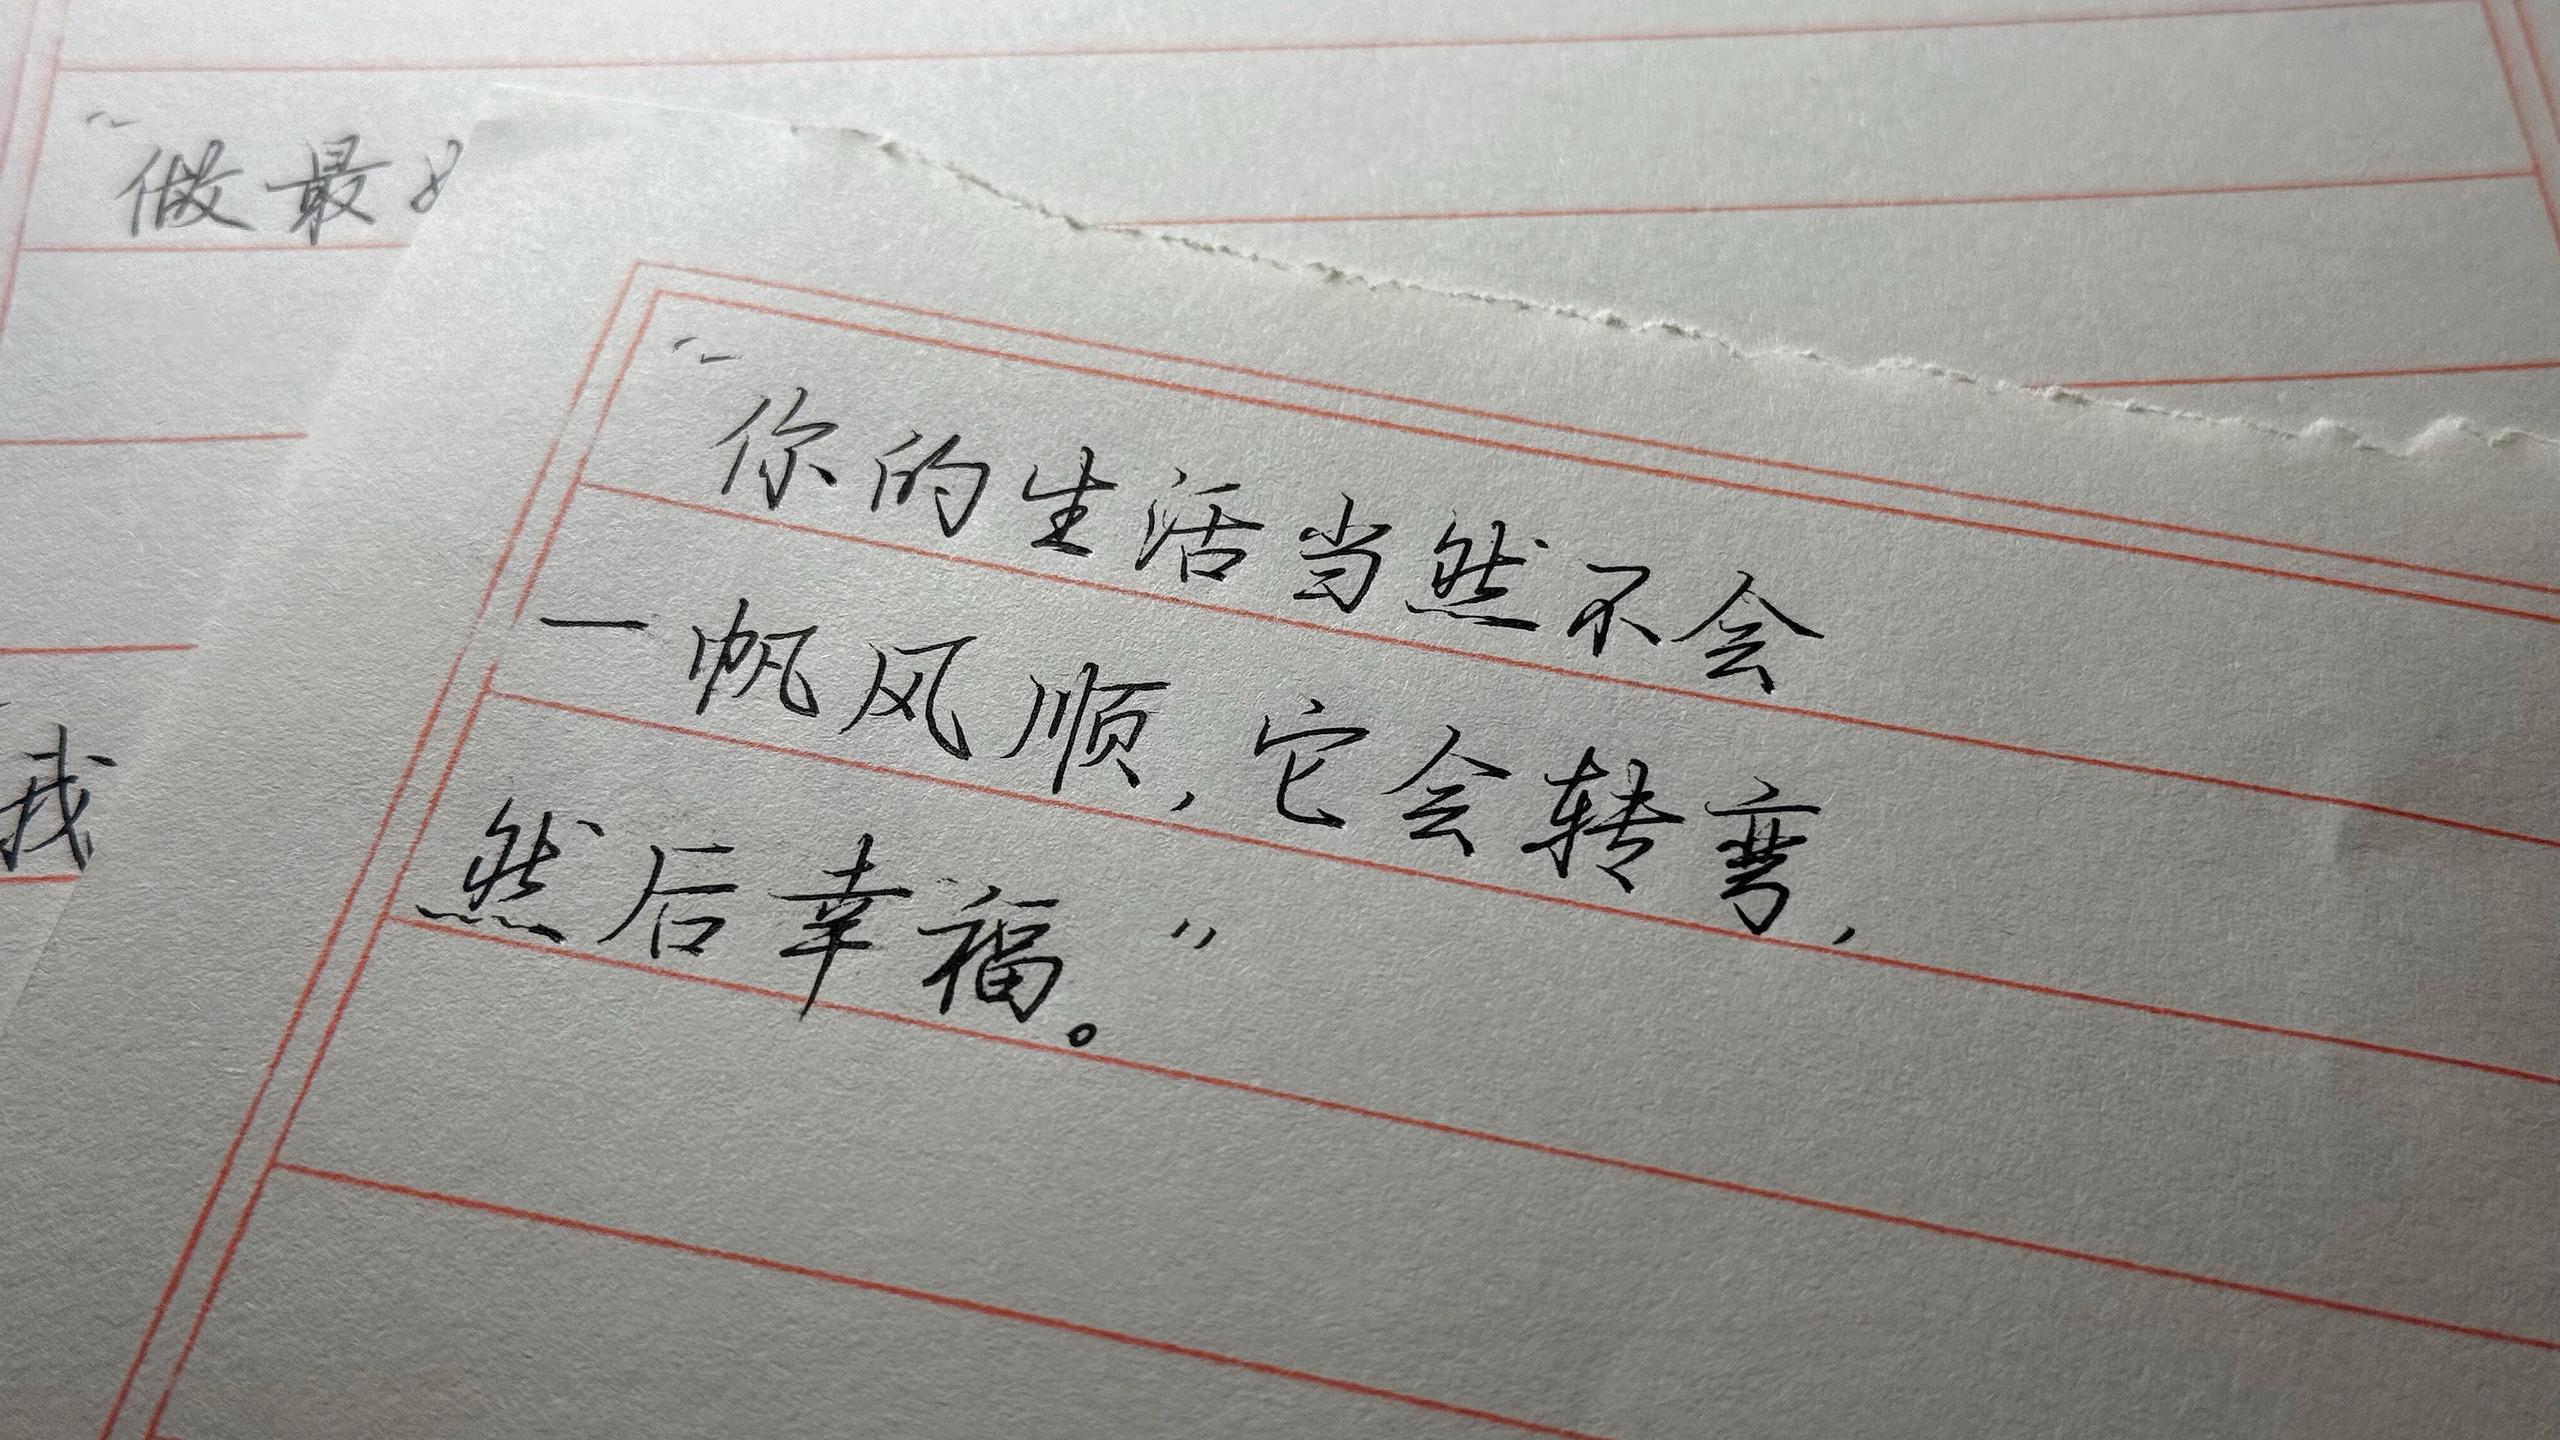 “做最
“你的生活当然不会
一帆风顺，它会转弯，
然后幸福。”
我